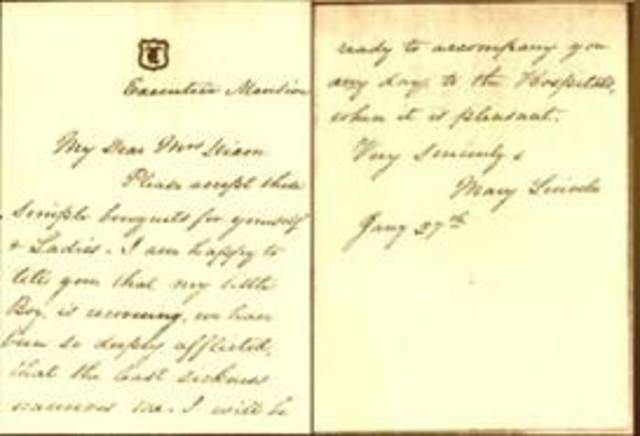 L
Executive Mansion
My Dear Mrs Dixon
Please accept these
simple bouquets for yourself
& Ladies. I am happy to
tell you that my little
Boy, is recovering, we have
been so deeply afflicted,
that the least sickness
unnerves me. I will be
ready to accompany you
any day, to the Hospitals,
when it is pleasant.
Very Sincerely &
Mary Lincoln
Jany 27th